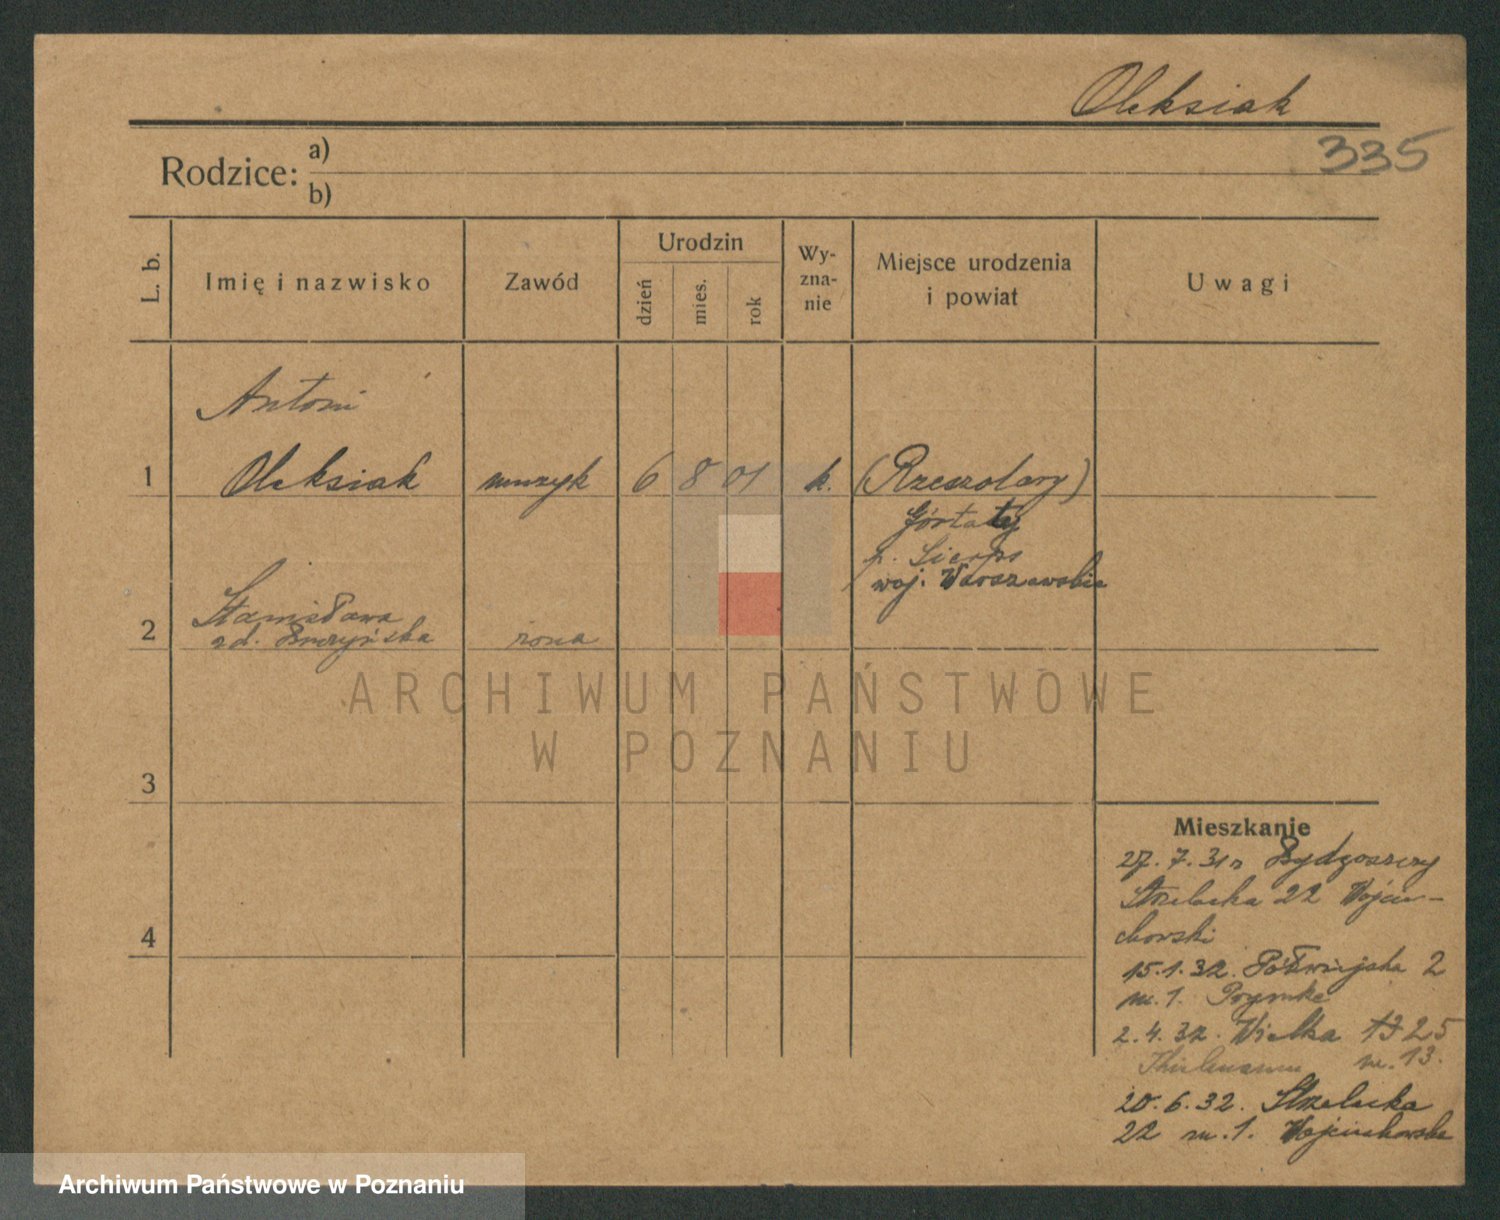 Oleksiak
335
Rodzice: a)
b)
L. b.
Imię i nazwisko
Zawód
Urodzin
dzień
mies.
rok
Wy-
zna-
nie
Miejsce urodzenia
i powiat
Uwagi
Antoni
1 Oleksiak muzyk 6 8 01 k. (Rzeszotary)
Górtaty
p. Sierpc
woj. Warszawskie
Stanisława
2 zd. Buczyńska żona
ARCHIWUM PAŃSTWOWE
W POZNANIU
3
Mieszkanie
27.7.31 z Bydgoszczy
Strzelecka 22 Wojcie-
chowski
4
15.1.32. Półwiejska 2
m. 1.
2.4.32. Wielka 25
m. 13.
20.6.32. Strzelecka
22 m. 1. Wojciechowska
Archiwum Państwowe w Poznaniu